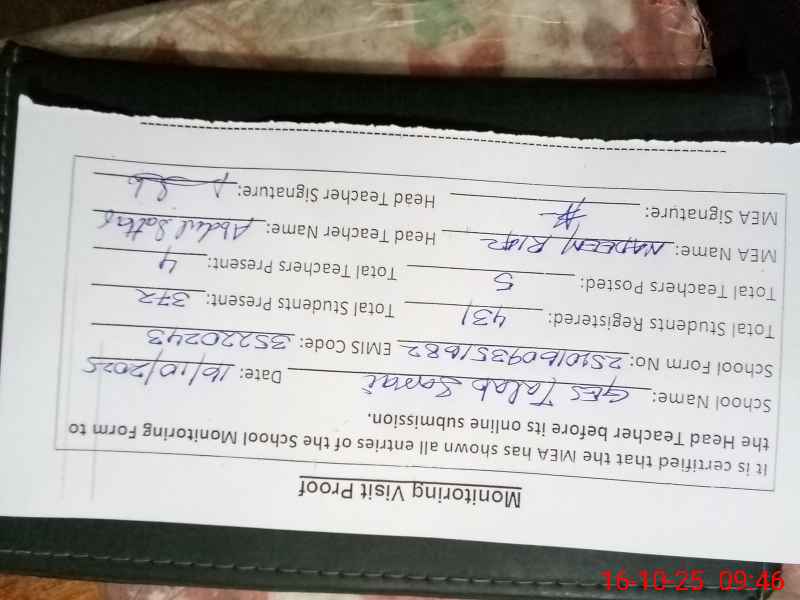 Monitoring Visit Proof
It is certified that the MEA has shown all entries of the School Monitoring Form to
the Head Teacher before its online submission.
School Name: GES Talab Sarai Date: 16/10/2025
School Form No: 25101609351682 EMIS Code: 35220243
Total Students Registered: 431 Total Students Present: 372
Total Teachers Posted: 5 Total Teachers Present: 4
MEA Name: NADEEM RIAZ Head Teacher Name: Abdul Sattar
MEA Signature: Head Teacher Signature:
16-10-25 09:46